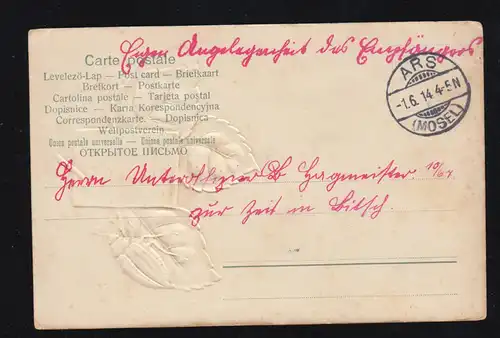 Carte postale
Eigen Angelegenheit des Empfängers
Levelező-Lap — Post card — Briefkaart
Brefkort — Postkarte
Cartolina postale — Tarjeta postal
Dopisnice — Karta Korespondencyjna
Correspondenzkarte. — Dopisnica
Weltpostverein
Union postale universelle — Unione postale universale
ОТКРЫТОЕ ПИСЬМО
ARS
-1.6.14 4-5N
(MOSEL)
Herrn Unteroffizier Hagmeister. 10/
zur Zeit in Bitsch.